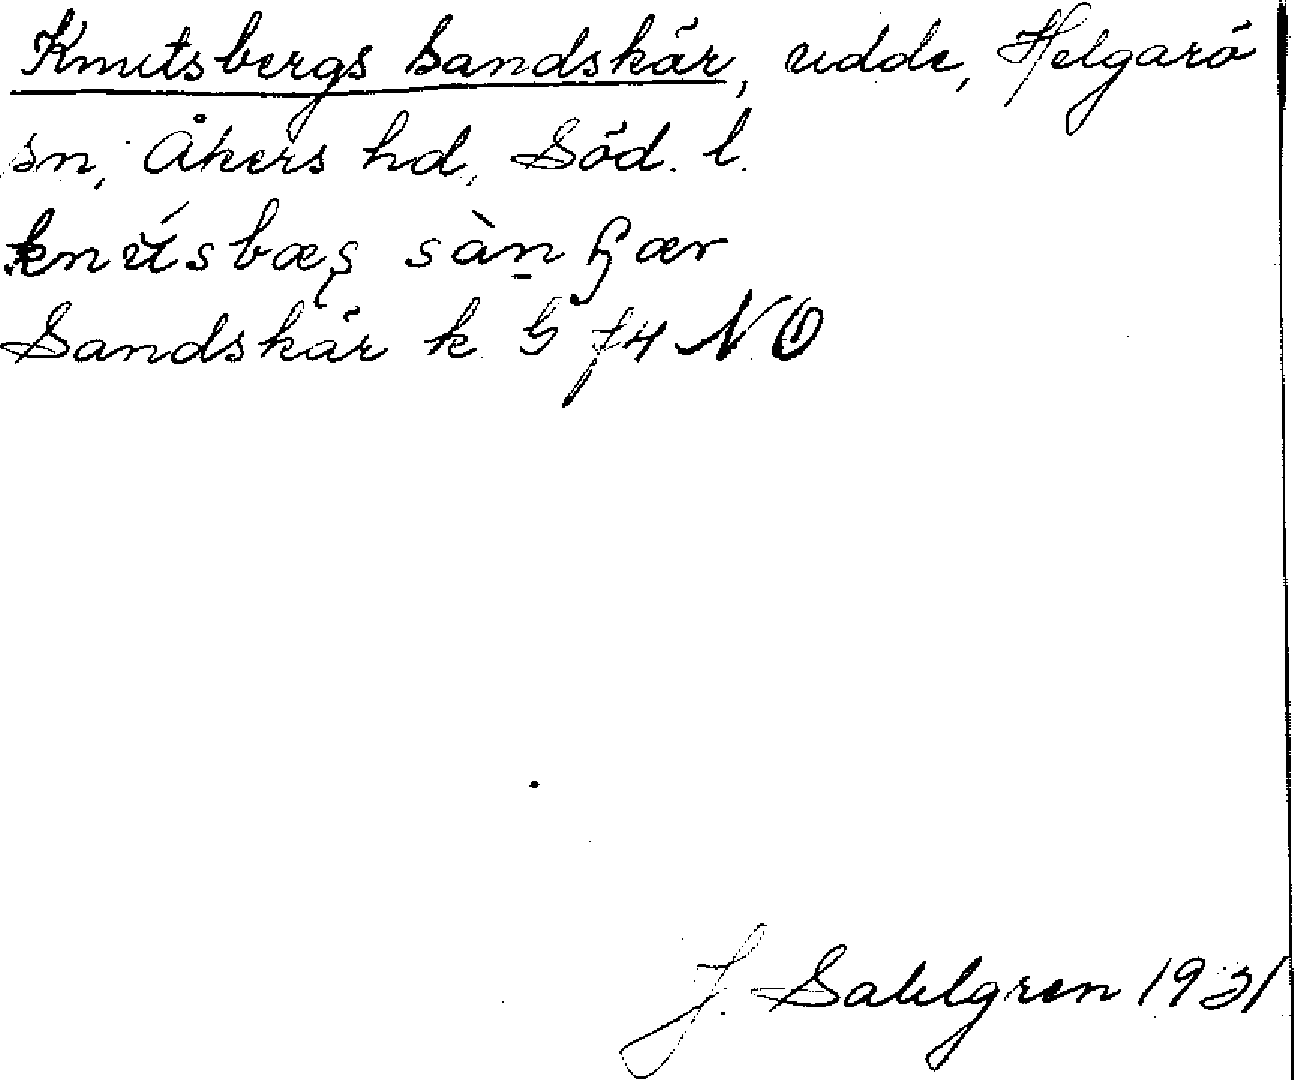 Knutsbergs Sandskär, udde, Helgarö
sn, Åkers hd, Söd. l.
Sandskär k 5 f4 NO
J. Sahlgren 1921